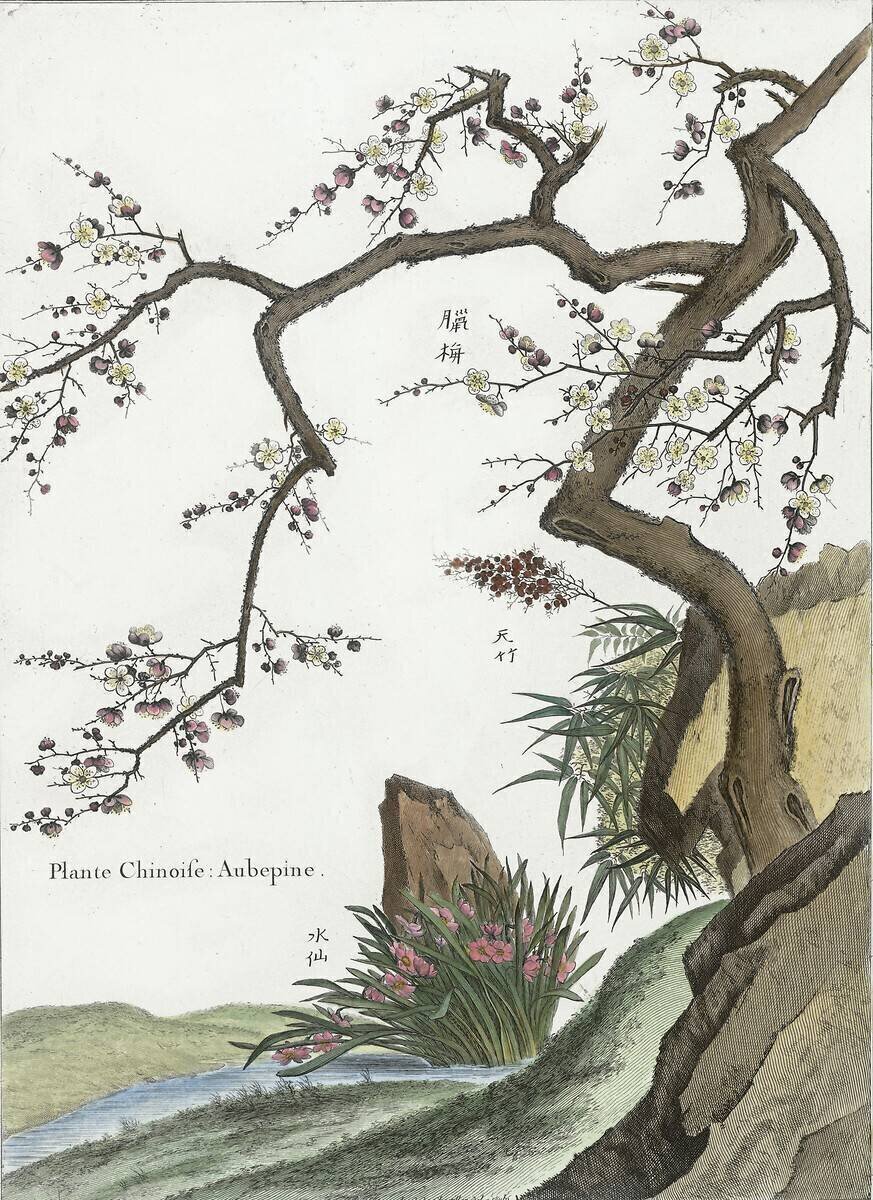 臘
梅
天
竹
Plante Chinoiſe : Aubepine .
水
仙